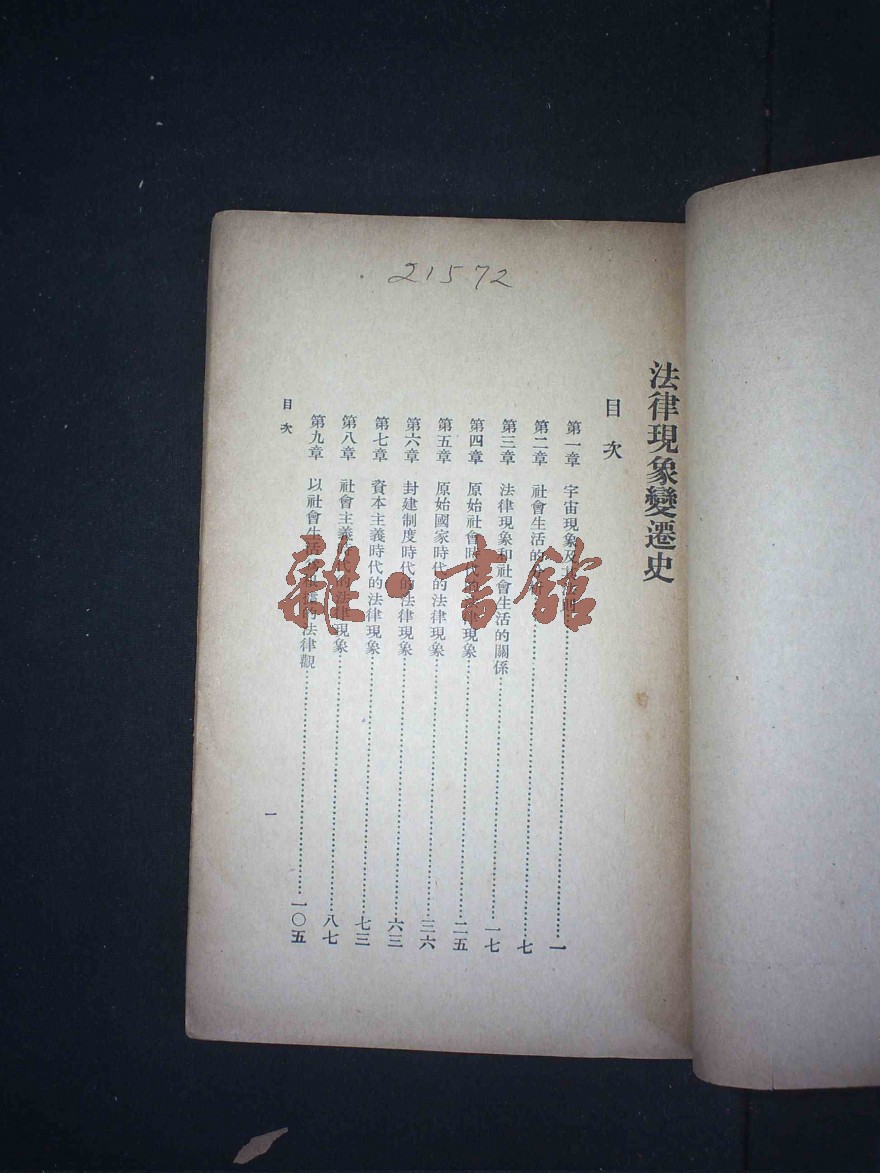 21572
法律現象變遷史
目次
第一章 宇宙現象及其法則 一
第二章 社會生活的分析 七
第三章 法律現象和社會生活的關係 一七
第四章 原始社會時代的法律現象 二五
第五章 原始國家時代的法律現象 三六
第六章 封建制度時代的法律現象 六三
第七章 資本主義時代的法律現象 七三
第八章 社會主義時代的法律現象 八七
第九章 以社會生活為根據的法律觀 一〇五
目次
一
雜·書館